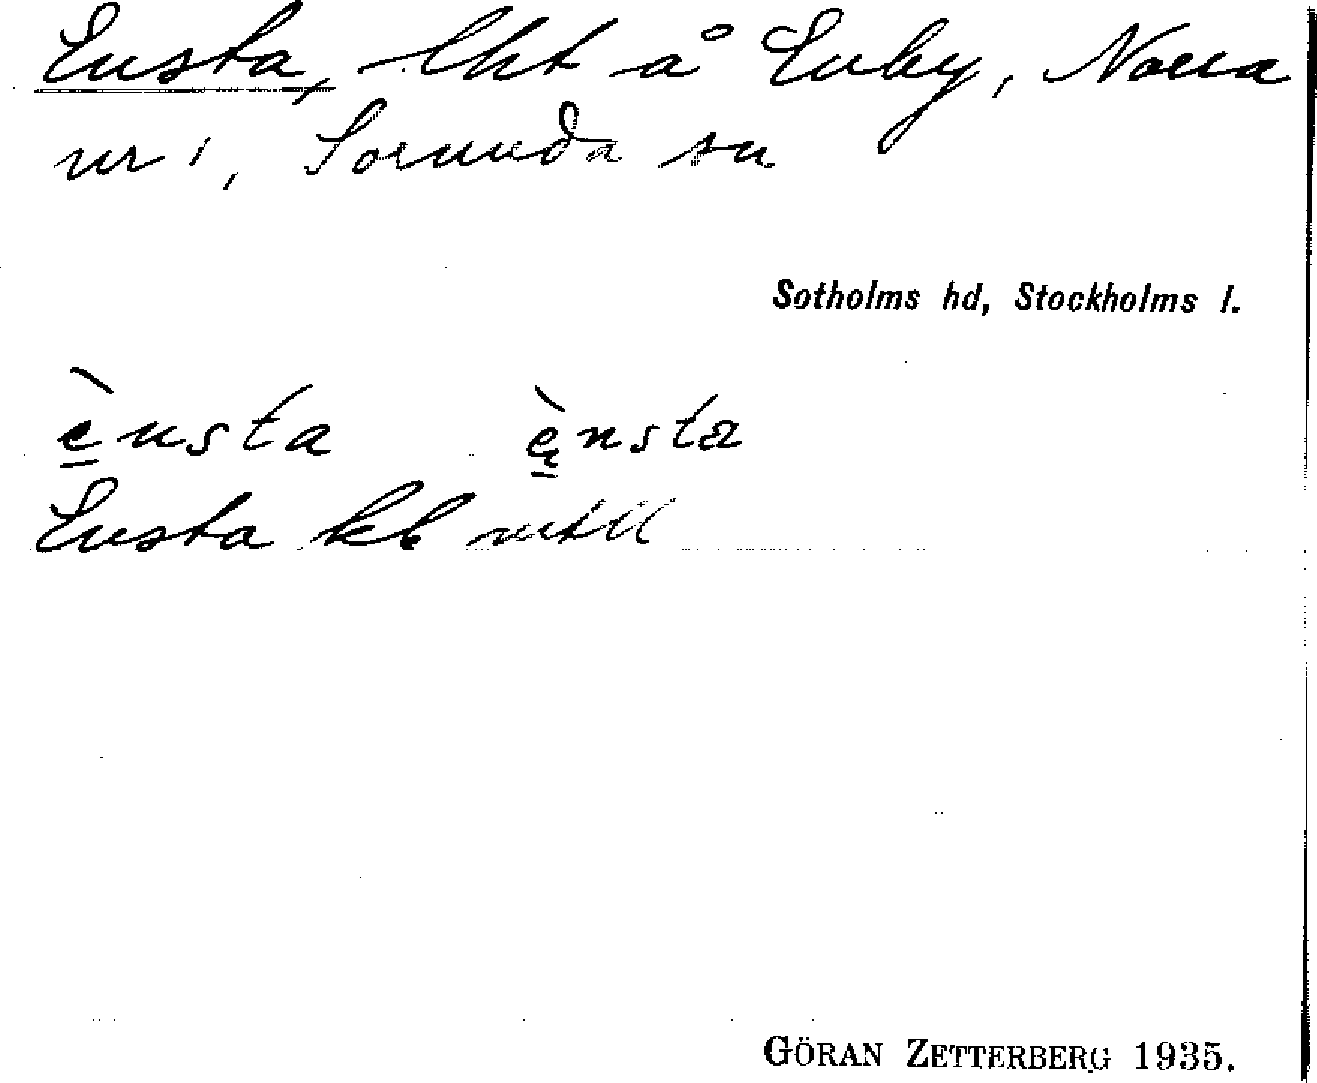 Ensta, lht å Enby, Norra
nr 1, Sorunda sn
Sotholms hd, Stockholms l.
è̱nsta ę̱̀nsta
Ensta kb mtll
GÖRAN ZETTERBERG 1935.